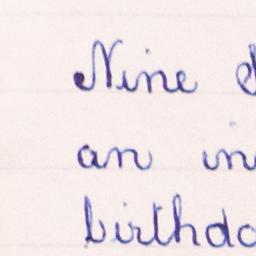 Nine
an in
birthda